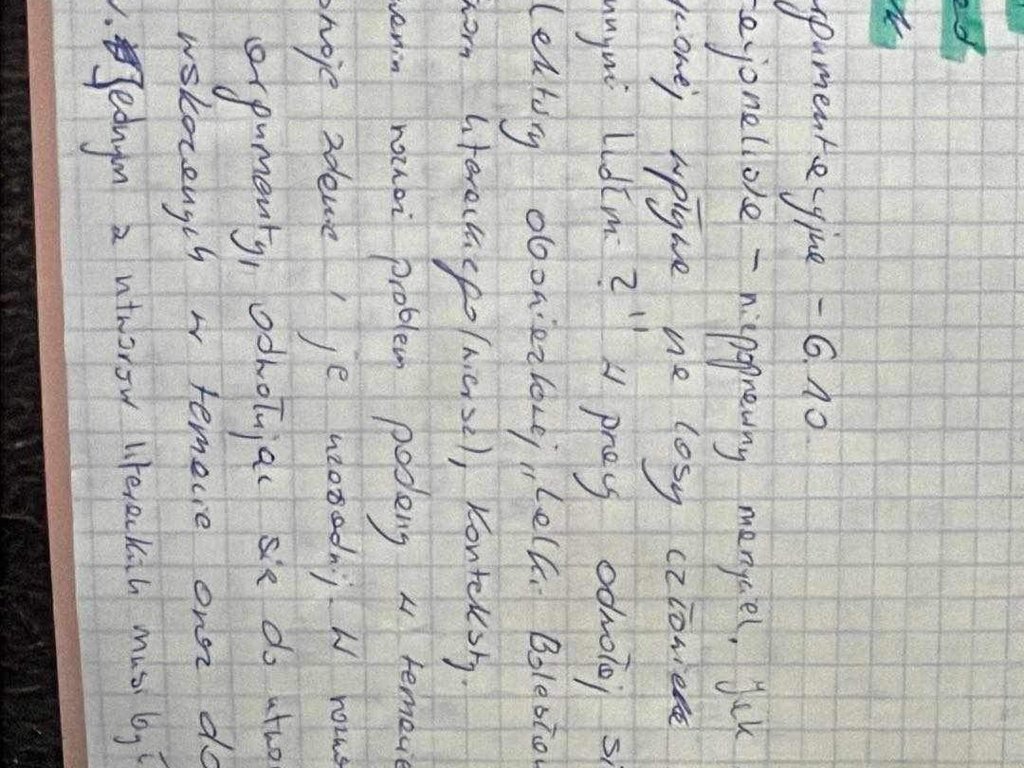 ed
argumentacyjne - 6.10.
racjonalista - niepoprawny marzyciel. Jak
wpływa na losy człowieka
innymi ludźmi?" W pracy odwołaj si
lektury obowiązkowej „Lalki" Bolesław
literackiego (wiersz), kontekstu.
rozważ problem podany w temacie
zdanie i je uzasadnij. W rozw
argumenty, odwołując się do utwo
wskazanych w temacie oraz do
Jednym z utworów literackich musi być